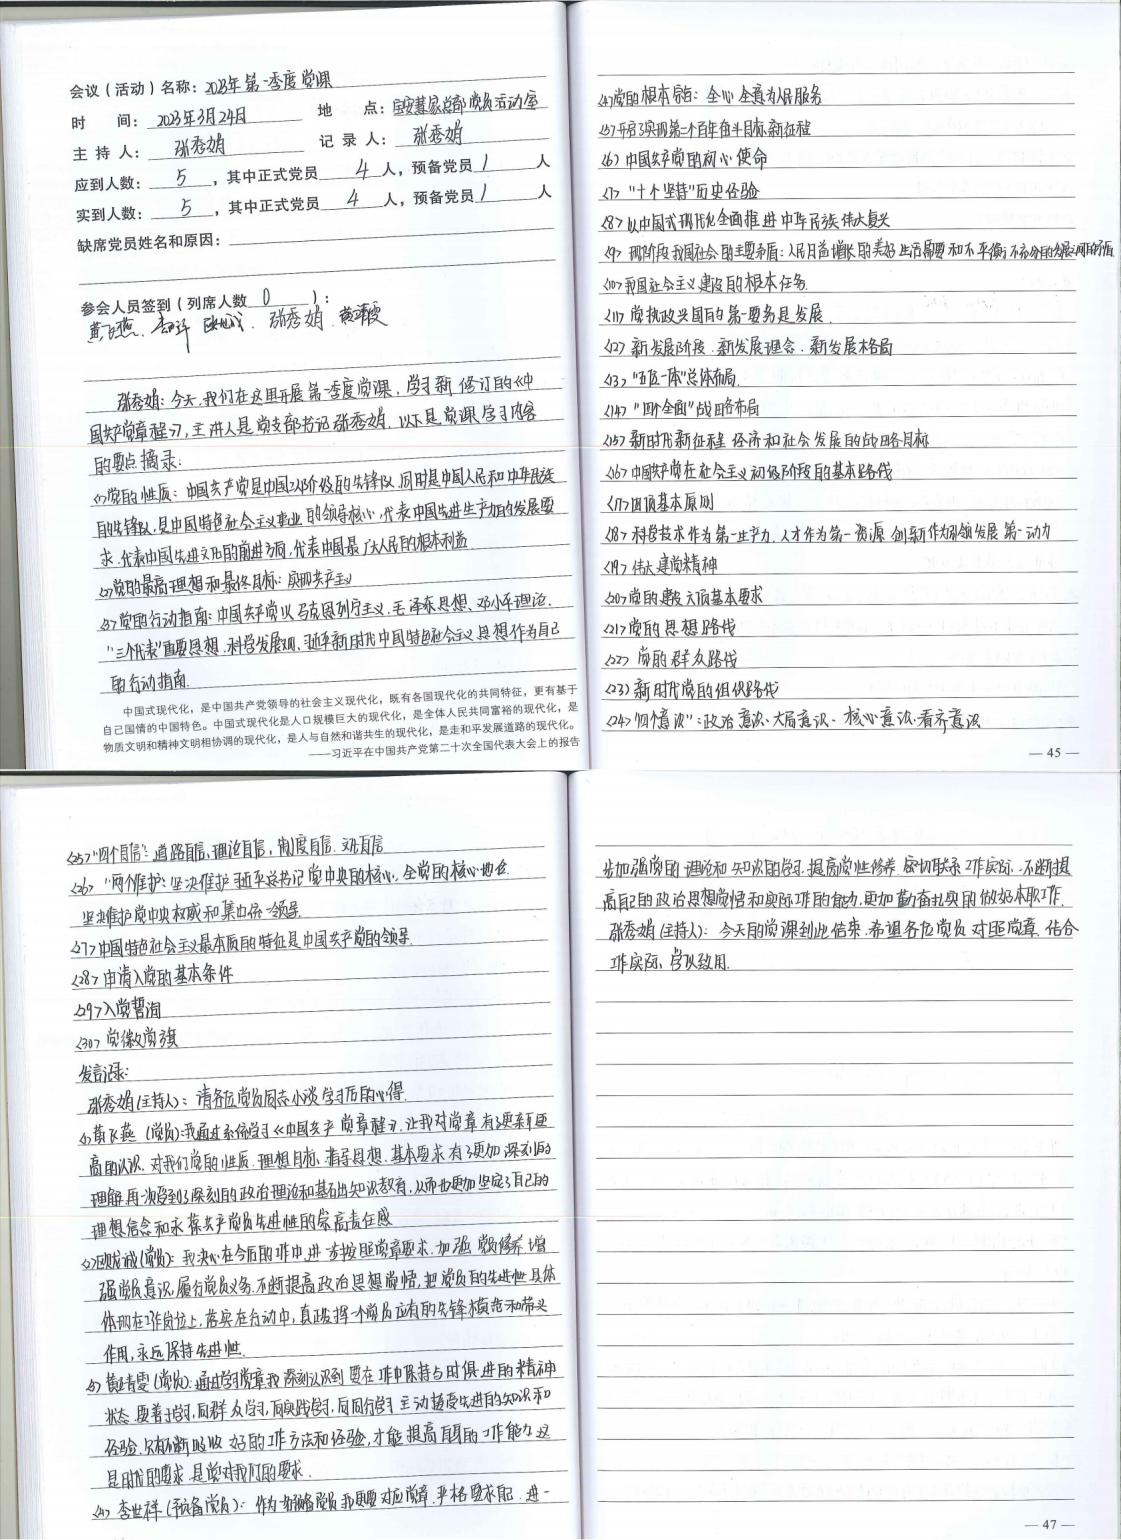 会议（活动）名称：2023年第一季度党课
时 间：2023年3月24日 地 点：宝安慧家总部党员活动室
主 持 人：张秀娟 记 录 人：张秀娟
应到人数：5，其中正式党员 4 人，预备党员 1 人
实到人数：5，其中正式党员 4 人，预备党员 1 人
缺席党员姓名和原因：
参会人员签到（列席人数 0 ）：
黄飞燕、张秀娟
张秀娟：今天，我们在这里开展第一季度党课，学习新修订的《中
国共产党章程》，主讲人是党支部书记张秀娟，以下是党课学习内容
的要点摘录：
<1>党的性质：中国共产党是中国工人阶级的先锋队，同时是中国人民和中华民族
的先锋队，是中国特色社会主义事业的领导核心，代表中国先进生产力的发展要
求，代表中国先进文化的前进方向，代表中国最广大人民的根本利益
<2>党的最高理想和最终目标：实现共产主义
<3>党的行动指南：中国共产党以马克思列宁主义、毛泽东思想、邓小平理论、
“三个代表”重要思想、科学发展观、习近平新时代中国特色社会主义思想作为自己
的行动指南.
中国式现代化，是中国共产党领导的社会主义现代化，既有各国现代化的共同特征，更有基于
自己国情的中国特色。中国式现代化是人口规模巨大的现代化，是全体人民共同富裕的现代化，是
物质文明和精神文明相协调的现代化，是人与自然和谐共生的现代化，是走和平发展道路的现代化。
——习近平在中国共产党第二十次全国代表大会上的报告
<4>党的根本宗旨：全心全意为人民服务
<5>开启了实现第二个百年奋斗目标新征程
<6>中国共产党的初心使命
<7>“十个坚持”历史经验
<8>以中国式现代化全面推进中华民族伟大复兴
<9>现阶段我国社会的主要矛盾：人民日益增长的美好生活需要和不平衡不充分的发展之间的矛盾
<10>我国社会主义建设的根本任务
<11>党执政兴国的第一要务是发展
<12>新发展阶段、新发展理念、新发展格局
<13>“五位一体”总体布局
<14>“四个全面”战略布局
<15>新时代新征程经济和社会发展的战略目标
<16>中国共产党在社会主义初级阶段的基本路线
<17>四项基本原则
<18>科学技术作为第一生产力、人才作为第一资源、创新作为引领发展第一动力
<19>伟大建党精神
<20>党的建设六项基本要求
<21>党的思想路线
<22>党的群众路线
<23>新时代党的组织路线
<24>“四个意识”：政治意识、大局意识、核心意识、看齐意识
— 45 —
<25>“四个自信”：道路自信、理论自信、制度自信、文化自信
<26>“两个维护”：坚决维护习近平总书记党中央的核心、全党的核心地位
坚决维护党中央权威和集中统一领导
<27>中国特色社会主义最本质的特征是中国共产党的领导
<28>申请入党的基本条件
<29>入党誓词
<30>党徽党旗
发言记录：
张秀娟（主持人）：请各位党员同志小谈学习后的心得.
<1>黄飞燕（党员）：我通过系统学习《中国共产党章程》，让我对党章有了更新更
高的认识，对我们党的性质、理想目标、指导思想、基本要求有了更加深刻的
理解，再次受到了深刻的政治理论和基础知识教育，从而也更加坚定了自己的
理想信念和永葆共产党员先进性的崇高责任感
<2>（党员）：我决心在今后的工作中，进一步按照党章要求，加强党性修养，增
强党员意识，履行党员义务，不断提高政治思想觉悟，把党员的先进性具体
体现在工作岗位上，落实在行动中，真正发挥一个党员应有的先锋模范和带头
作用，永远保持先进性.
<3>（党员）：通过学习党章我深刻认识到要在工作中保持与时俱进的精神
状态，要善于学习，向群众学习，向实践学习，向同行学习，主动接受先进的知识和
经验，只有不断吸收好的工作方法和经验，才能提高自身的工作能力，这
是时代的要求，是党对我们的要求.
<4>李世祥（预备党员）：作为预备党员我更要对应党章，严格要求自己，进一
步加强党的理论和知识的学习，提高党性修养，密切联系工作实际，不断提
高自己的政治思想觉悟和实际工作的能力，更加勤奋扎实的做好本职工作.
张秀娟（主持人）：今天的党课到此结束，希望各位党员对照党章，结合
工作实际，学以致用.
— 47 —